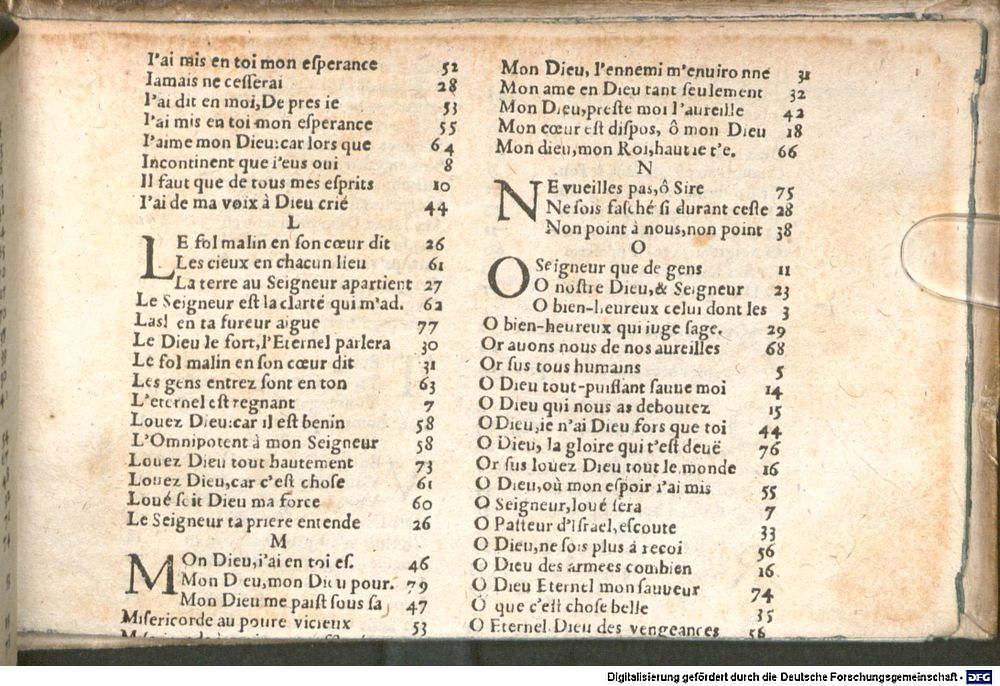 I'ai mis en toi mon eſperance 52
Iamais ne ceſſerai 28
I'ai dit en moi,De pres ie 53
I'ai mis en toi mon eſperance 55
I'aime mon Dieu:car lors que 64
Incontinent que i'eus oui 8
Il faut que de tous mes eſprits 10
I'ai de ma voix à Dieu crié 44
L
LE fol malin en ſon cœur dit 26
Les cieux en chacun lieu 61
La terre au Seigneur apartient 27
Le Seigneur eſt la clarté qui m'ad. 62
Las! en ta fureur aigue 77
Le Dieu le fort,l'Eternel parlera 30
Le fol malin en ſon cœur dit 31
Les gens entrez ſont en ton 63
L'eternel eſt regnant 7
Louez Dieu:car il eſt benin 58
L'Omnipotent à mon Seigneur 58
Louez Dieu tout hautement 73
Louez Dieu,car c'eſt choſe 61
Loué ſoit Dieu ma force 60
Le Seigneur ta priere entende 26
M
MOn Dieu,i'ai en toi eſ. 46
Mon Dieu,mon Dieu pour. 79
Mon Dieu me paiſt ſous ſa 47
Miſericorde au poure vicieux 53
Mon Dieu, l'ennemi m'enuironne 31
Mon ame en Dieu tant ſeulement 32
Mon Dieu,preſte moi l'aureille 42
Mon cœur eſt diſpos, ô mon Dieu 18
Mon dieu,mon Roi,haut ie t'e. 66
N
NE vueilles pas,ô Sire 75
Ne ſois faſché ſi durant ceſte 28
Non point à nous,non point 38
O
O Seigneur que de gens 11
O noſtre Dieu,& Seigneur 23
O bien-heureux celui dont les 3
O bien-heureux qui iuge ſage. 29
Or auons nous de nos aureilles 68
Or ſus tous humains 5
O Dieu tout-puiſſant ſauue moi 14
O Dieu qui nous as deboutez 15
O Dieu,ie n'ai Dieu fors que toi 44
O Dieu, la gloire qui t'eſt deuë 76
Or ſus louez Dieu tout le monde 16
O Dieu,où mon eſpoir i'ai mis 55
O Seigneur,loué ſera 7
O Paſteur d'Iſrael,eſcoute 33
O Dieu,ne ſois plus à recoi 56
O Dieu des armees combien 16
O Dieu Eternel mon ſauueur 74
O que c'eſt choſe belle 35
O Eternel Dieu des vengeances 56
Digitalisierung gefördert durch die Deutsche Forschungsgemeinschaft - DFG